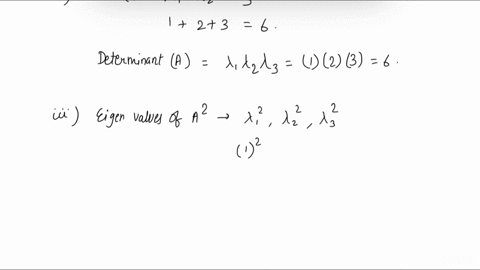 1 + 2 + 3 = 6.
Determinant (A) = λ₁ λ₂ λ₃ = (1) (2) (3) = 6.
iii) Eigen values of A² → λ₁², λ₂², λ₃²
(1)²